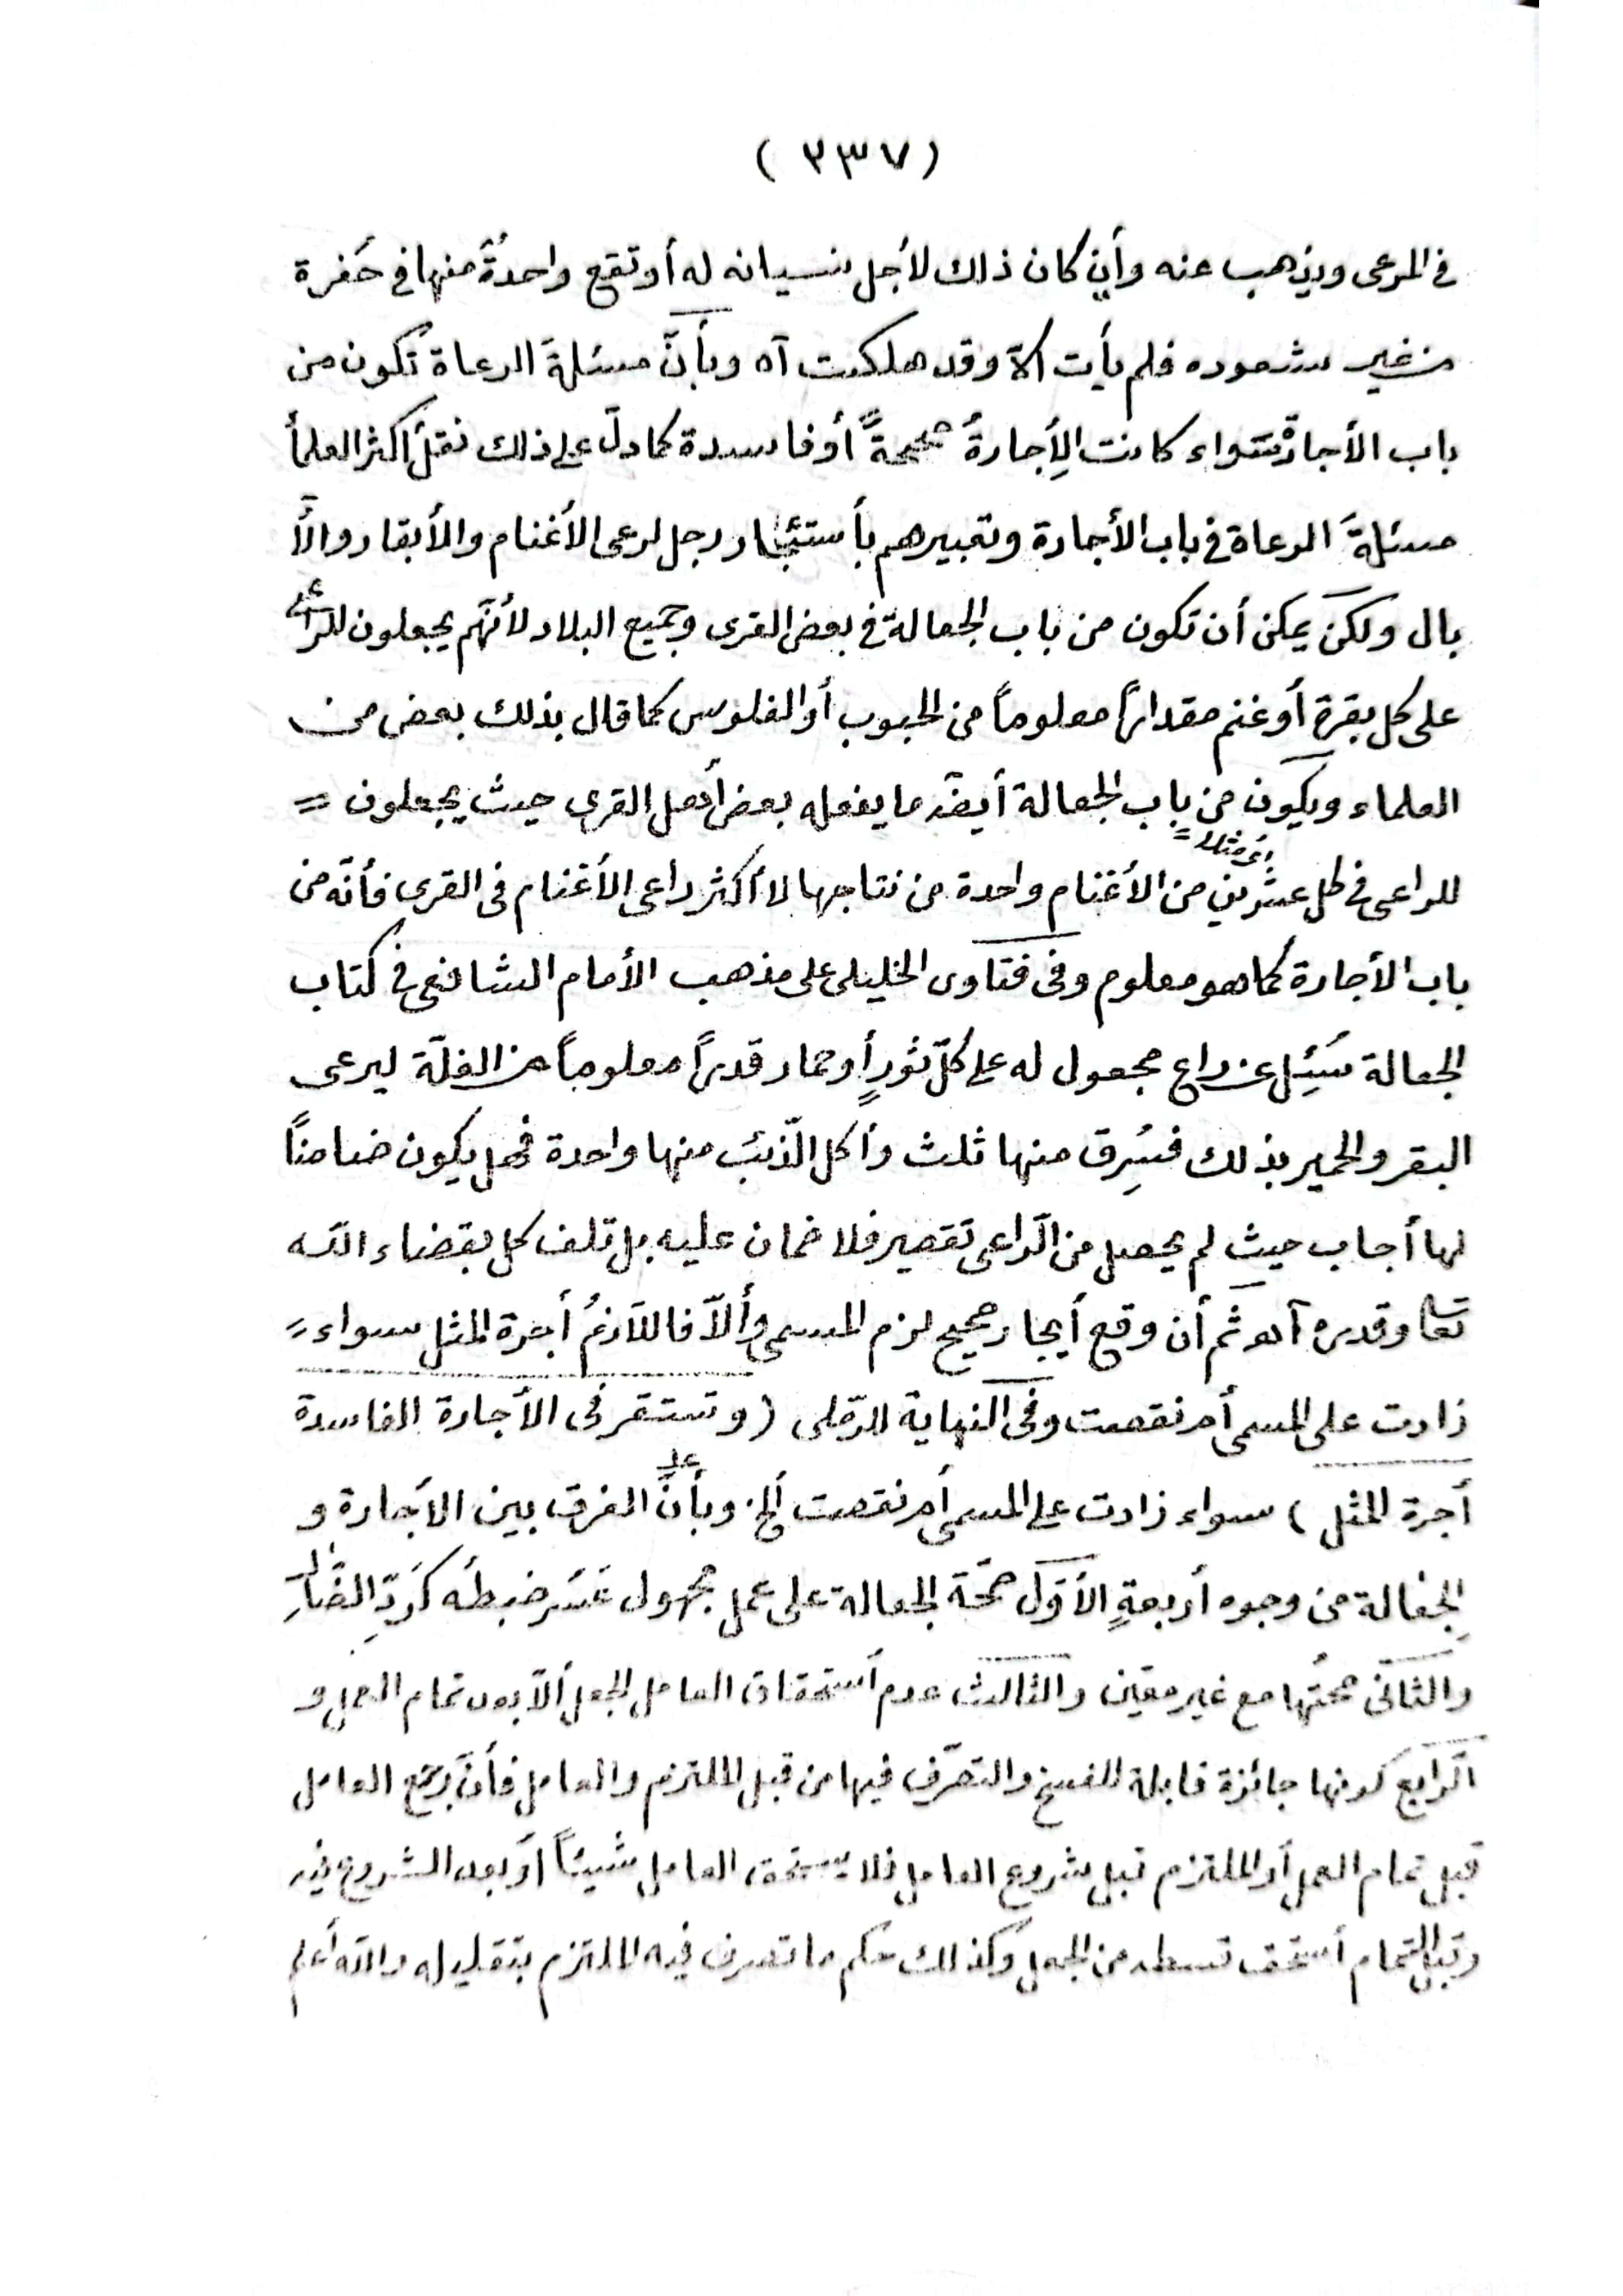 ( ٣٣٧ )
فى المرعى ويذهب عنه وأن كان ذلك لأجل نسيانه له أو تقع واحدةٌ منها فى حَفرة
من غير شعوره فلم يأت الاّ وقد هلكت آه وبأنّ مسئلة الرعاة تكون من
باب الأجارة سواء كانت الإجارةُ صحيحةً أو فاسدة كما دلّ على ذلك نقلُ أكثر العلمأ
مسئلةَ الرعاة فى باب الأجارة وتعبيرهم بأستئجار رجل لرعى الأغنام والأبقار والأ
بال ولكن يمكن أن تكون من باب الجعالة فى بعض القرى وجميع البلاد لأنّهم يجعلون للراعى
على كل بقرة أو غنم مقداراً معلوماً من الحبوب أو الفلوس كما قال بذلك بعض من
العلماء ويكون من باب الجعالة أيضًا ما يفعله بعض أهل القرى حيث يجعلون =
أى مثلا =
للراعى فى كل عشرين من الأغنام واحدة من نتاجها لا أكثر راعى الأغنام فى القرى فأنّه من
باب الأجارة كما هو معلوم وفى فتاوى الخليلى على مذهب الأمام الشافعى فى كتاب
الجعالة سُئِل عن راعٍ مجعول له على كلّ ثورٍ أو حمار قدراً معلوماً من الغلّة ليرعى
البقر والحمير بذلك فسُرِق منها ثلث وأكل الذّئب منها واحدة فهل يكون ضامناً
لها أجاب حيث لم يحصل من الرّاعى تقصير فلا ضمان عليه بل تلف كل بقضاء الله
تعا وقدره آه ثم أن وقع أيجار صحيح لزم المسمى وألاّ فاللاّزمُ أجرة المثل سواء =
زادت على المسمى أم نقصت وفى النهاية للرّملى (وتستقر فى الأجارة الفاسدة
أجرة المثل) سواء زادت على المسمى أم نقصت ألخ وبأنَّ الفرق بين الأجارة و
الجعالة من وجوه أربعةٍ الأوّل صحّة الجعالة على عمل مجهول عَسُر ضبطُه كَرَدِّ الضّالّ
والثانى صحّتُها مع غير معيّن والثالث عدم أستحقاق العامل الجعل ألاّ بعد تمام العمل و
الرّابع كونها جائزة قابلة للفسخ والتصرّف فيها من قبل الملتزم والعامل فأن رجع العامل
قبل تمام العمل أو الملتزم قبل شروع العامل فلا يستحق العامل شيئاً أو بعد الشروع فيه
وقبل التمام أستحق قسطه من الجعل وكذلك حكم ما تصرف فيه الملتزم بتقليله والله أعلم